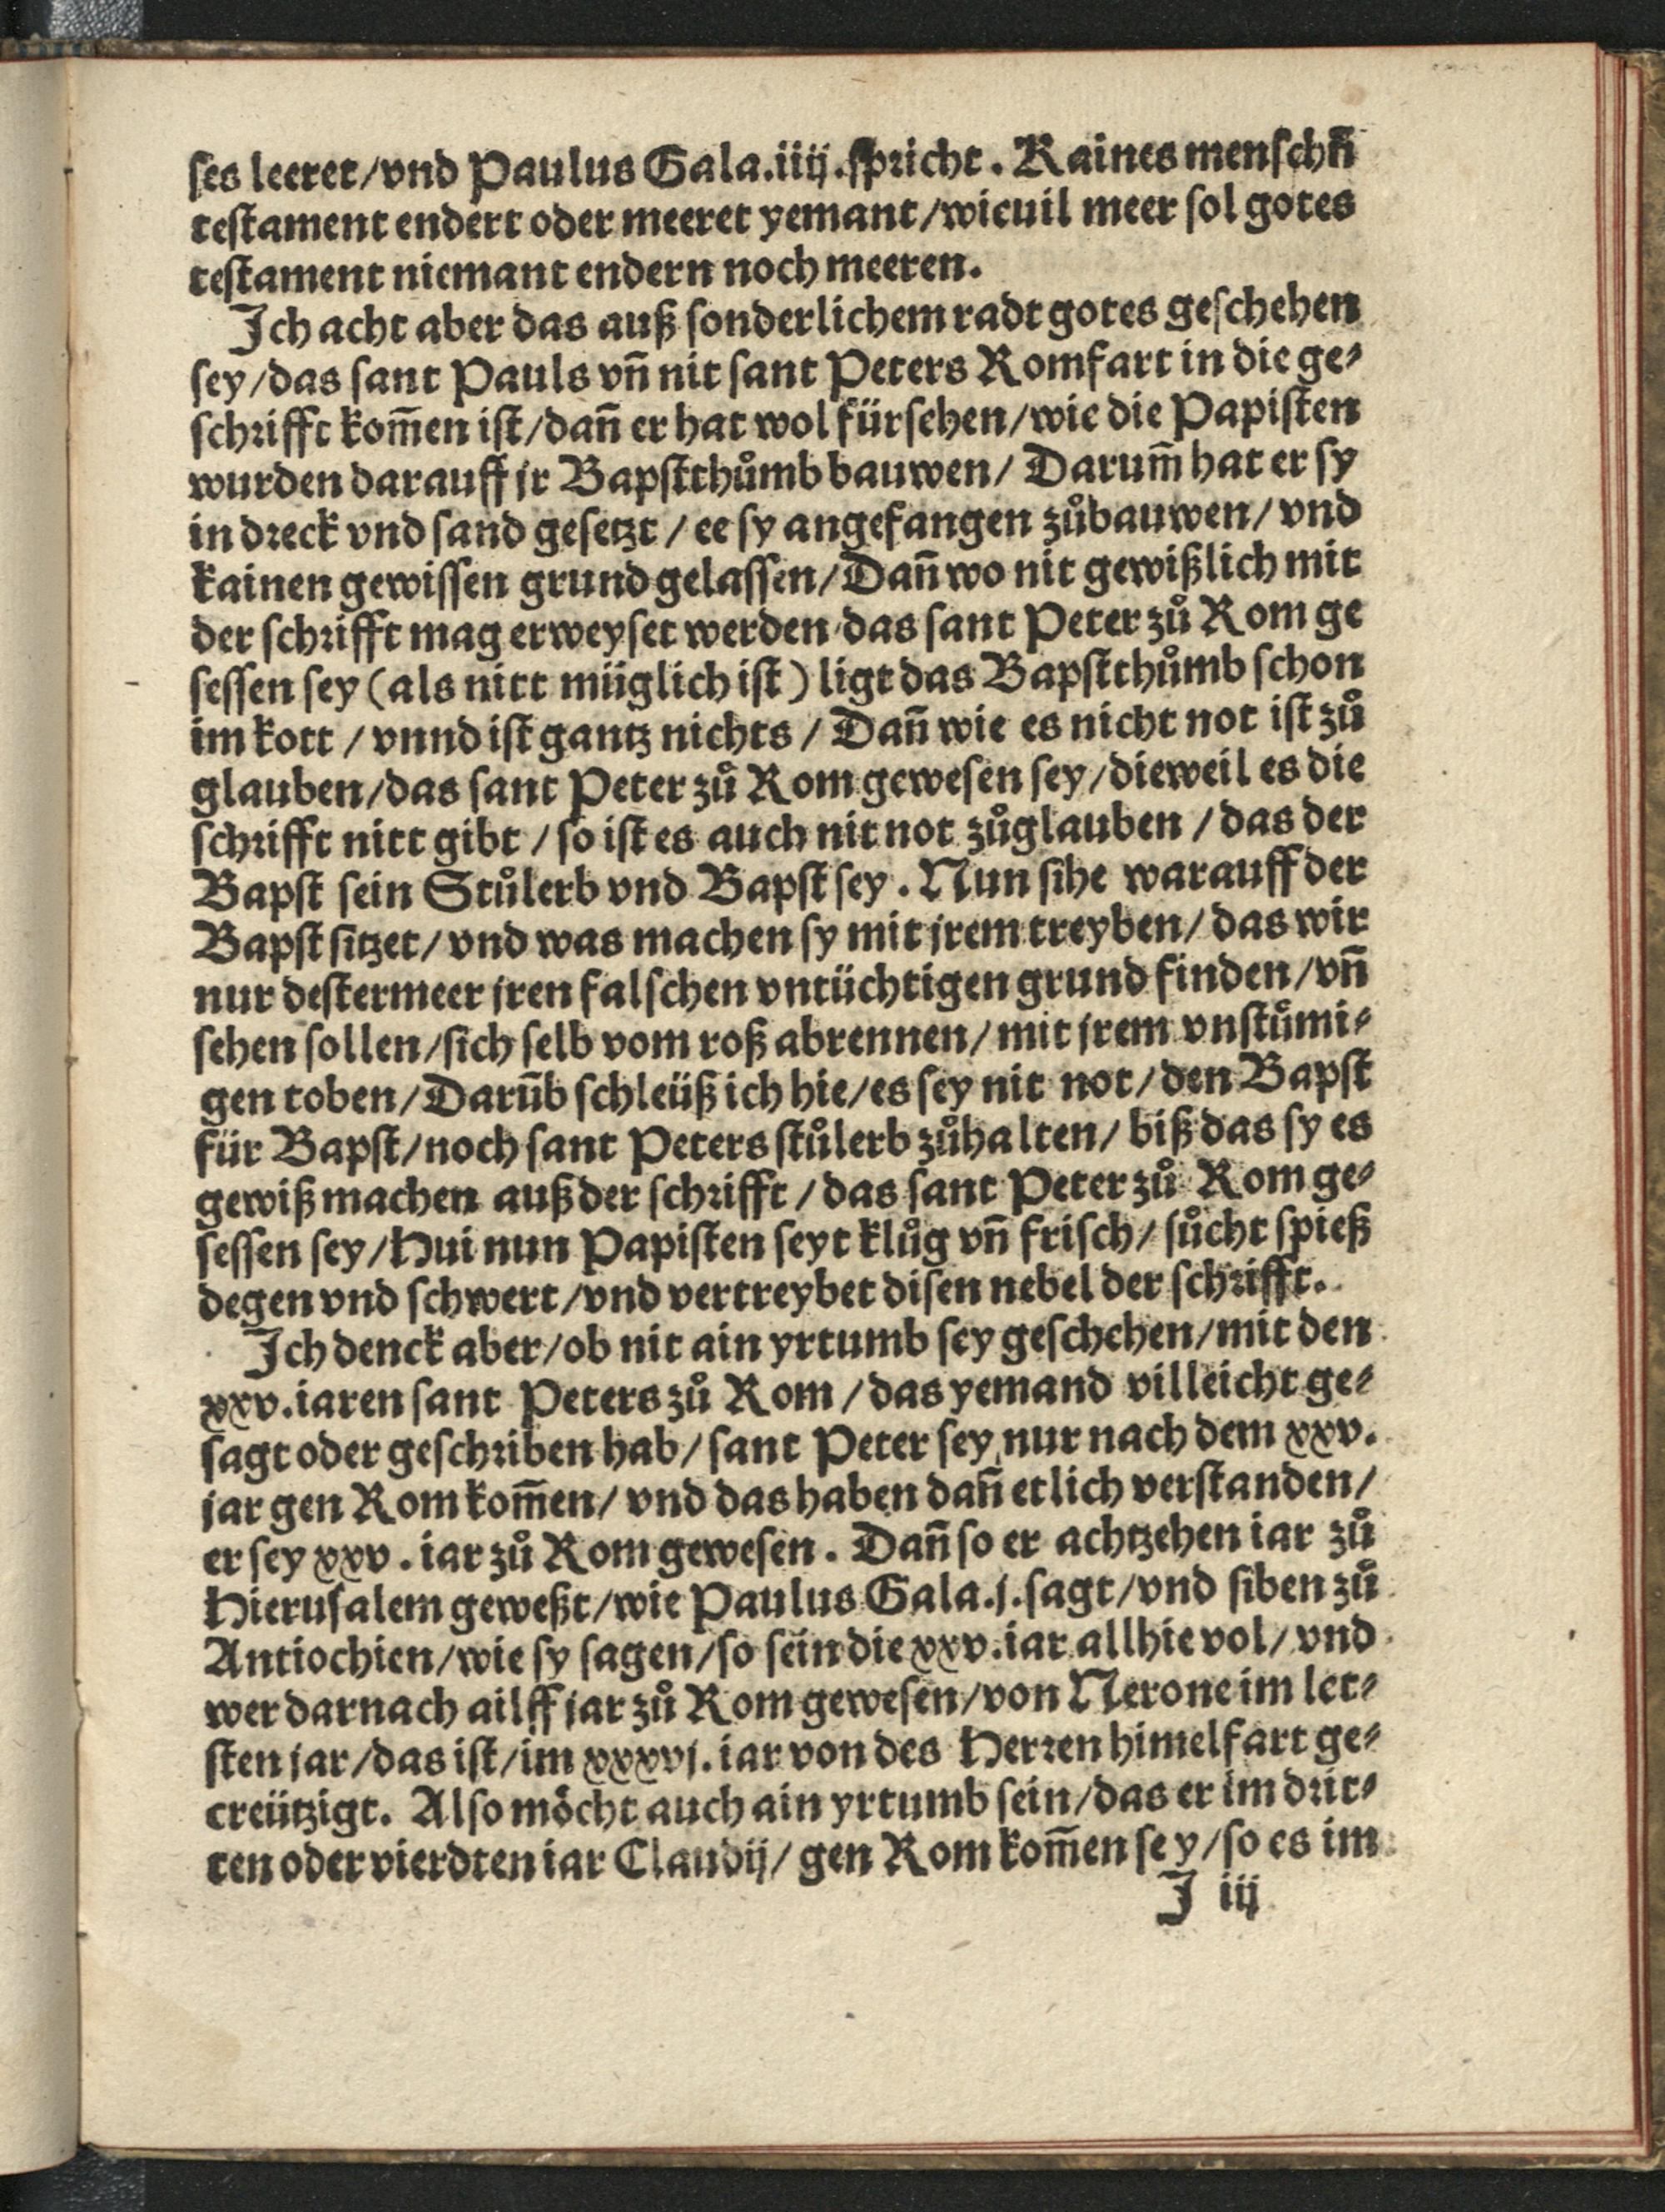 ſes leeret/vnd Paulus Gala.iiij.ſpricht. Kaines menſchn̄
teſtament endert oder meeret yemant/wieuil meer ſol gotes
teſtament niemant endern noch meeren.
Ich acht aber das auß ſonderlichem radt gotes geſchehen
ſey/das ſant Pauls vn̄ nit ſant Peters Romfart in die ge⸗
ſchrifft kom̄en iſt/dan̄ er hat wol fürſehen/wie die Papiſten
wurden darauff jr Bapſtthůmb bauwen/ Darum̄ hat er ſy
in dreck vnd ſand geſetzt / ee ſy angefangen zůbauwen/ vnd
kainen gewiſſen grund gelaſſen/Dan̄ wo nit gewißlich mit
der ſchrifft mag erweyſet werden/das ſant Peter zů Rom ge
ſeſſen ſey (als nitt müglich iſt) ligt das Bapſtthůmb ſchon
im kott / vnnd iſt gantz nichts / Dan̄ wie es nicht not iſt zů
glauben/das ſant Peter zů Rom geweſen ſey/dieweil es die
ſchrifft nitt gibt / ſo iſt es auch nit not zůglauben / das der
Bapſt ſein Stůlerb vnd Bapſt ſey. Nun ſihe warauff der
Bapſt ſitzet/ vnd was machen ſy mit jrem treyben/ das wir
nur deſtermeer jren falſchen vntüchtigen grund finden/vn̄
ſehen ſollen/ſich ſelb vom roß abrennen/ mit jrem vnſtůmi⸗
gen toben/Darūb ſchleüß ich hie/es ſey nit not/den Bapſt
für Bapſt/noch ſant Peters ſtůlerb zůhalten/ biß das ſy es
gewiß machen auß der ſchrifft / das ſant Peter zů Rom ge⸗
ſeſſen ſey/Hui nun Papiſten ſeyt klůg vn̄ friſch/ ſůcht ſpieß
degen vnd ſchwert/vnd vertreybet diſen nebel der ſchrifft.
Ich denck aber/ob nit ain yrtumb ſey geſchehen/mit den
xxv.iaren ſant Peters zů Rom /das yemand villeicht ge⸗
ſagt oder geſchriben hab/ ſant Peter ſey nur nach dem xxv.
jar gen Rom kom̄en/ vnd das haben dan̄ etlich verſtanden/
er ſey xxv. iar zů Rom geweſen. Dan̄ ſo er achtzehen iar zů
Hieruſalem geweßt/wie Paulus Gala.j.ſagt/vnd ſiben zů
Antiochien/wie ſy ſagen/ſo ſein die xxv.iar allhie vol/ vnd
wer darnach ailff jar zů Rom geweſen/von Nerone im let⸗
ſten jar/das iſt/im xxxvj.iar von des Herren himelfart ge⸗
creützigt. Alſo möcht auch ain yrtumb ſein/das er im drit⸗
ten oder vierdten iar Claudij/ gen Rom kom̄en ſey/ſo es im
J iij